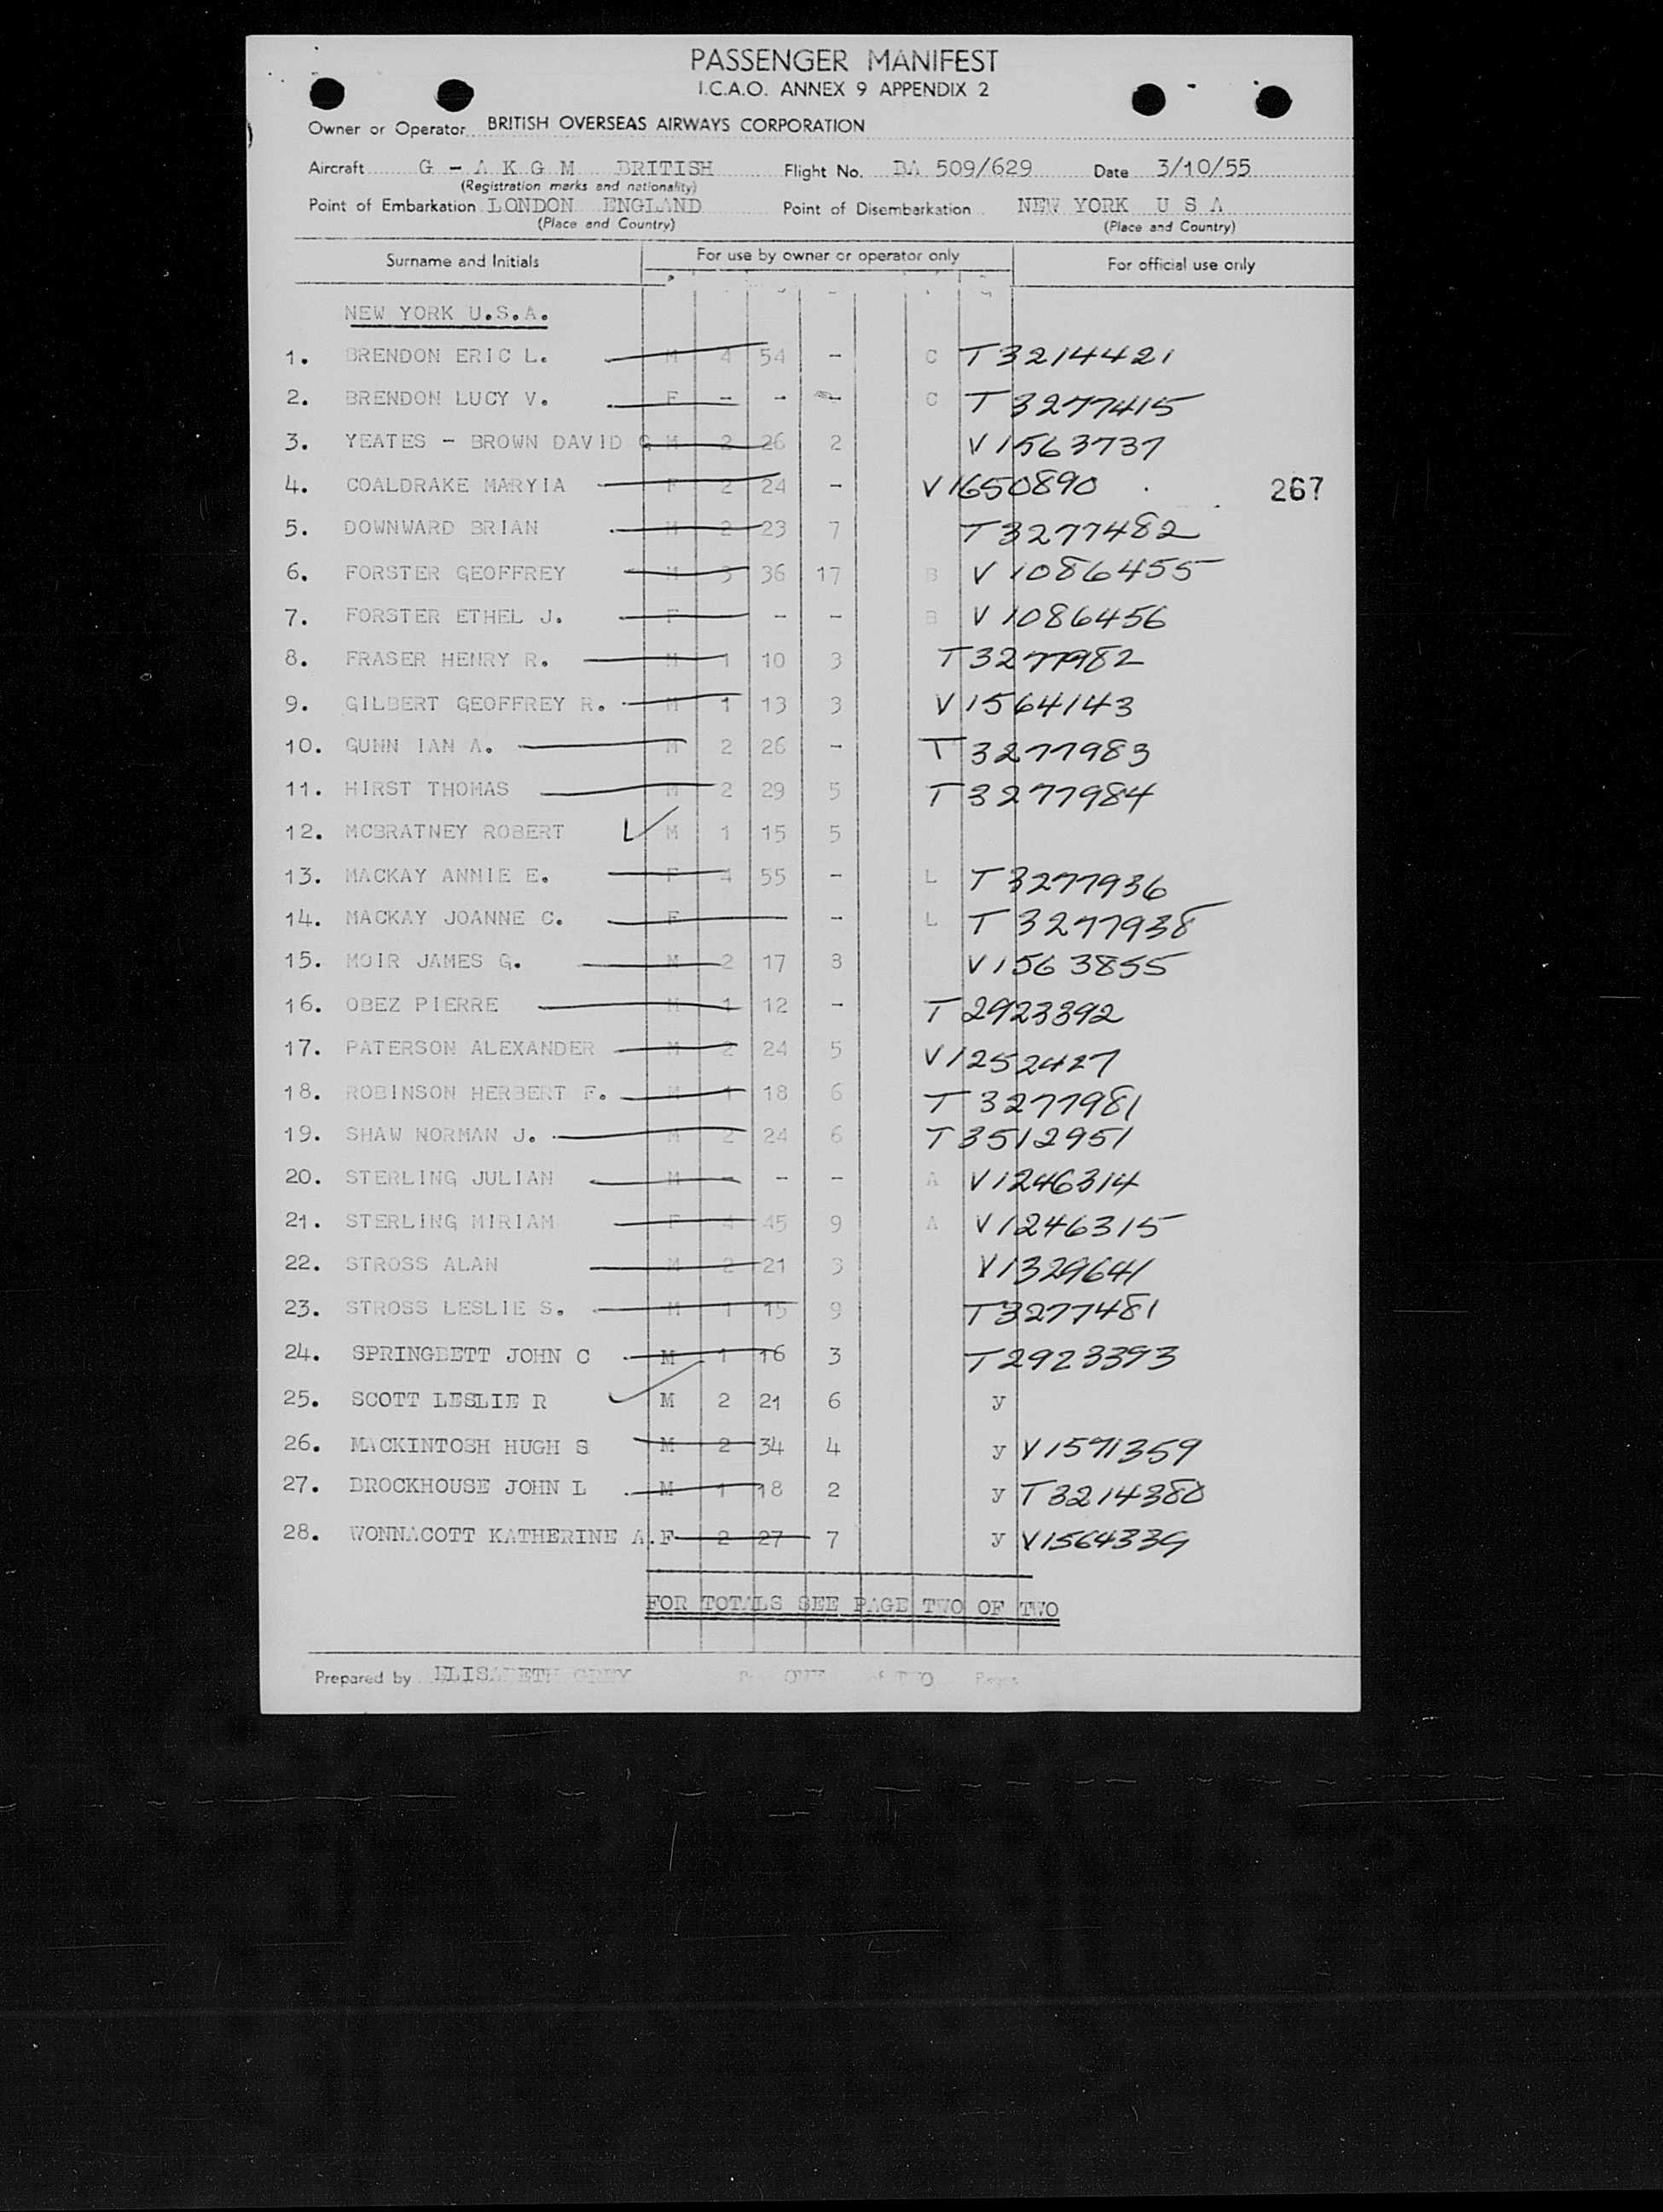 PASSENGER MANIFEST
I.C.A.O. ANNEX 9 APPENDIX 2
Owner or Operator BRITISH OVERSEAS AIRWAYS CORPORATION
Aircraft G - A K G M BRITISH Flight No. BA 509/629 Date 3/10/55
(Registration marks and nationality)
Point of Embarkation LONDON ENGLAND Point of Disembarkation NEW YORK U S A
(Place and Country) (Place and Country)
Surname and Initials For use by owner or operator only For official use only
NEW YORK U.S.A.
1. BRENDON ERIC L. M 4 54 - C T3214421
2. BRENDON LUCY V. F - - - C T3277415
3. YEATES - BROWN DAVID G M 2 26 2 V1563737
4. COALDRAKE MARYIA F 2 24 - V1650890 267
5. DOWNWARD BRIAN M 2 23 7 T3277482
6. FORSTER GEOFFREY M 3 36 17 B V1086455
7. FORSTER ETHEL J. F - - B V1086456
8. FRASER HENRY R. M 1 10 3 T3277982
9. GILBERT GEOFFREY R. M 1 13 3 V1564143
10. GUNN IAN A. M 2 26 - T3277983
11. HIRST THOMAS M 2 29 5 T3277984
12. MCBRATNEY ROBERT M 1 15 5
13. MACKAY ANNIE E. F 4 55 - L T3277936
14. MACKAY JOANNE C. F - L T3277938
15. MOIR JAMES G. M 2 17 8 V1563855
16. OBEZ PIERRE M 1 12 - T2923392
17. PATERSON ALEXANDER M 2 24 5 V1252427
18. ROBINSON HERBERT F. M 1 18 6 T3277981
19. SHAW NORMAN J. M 2 24 6 T3512951
20. STERLING JULIAN M - - - A V1246314
21. STERLING MIRIAM F 4 45 9 A V1246315
22. STROSS ALAN M 2 21 3 V1329641
23. STROSS LESLIE S. M 1 15 9 T3277481
24. SPRINGBETT JOHN C M 1 16 3 T2923393
25. SCOTT LESLIE R M 2 21 6 y
26. MACKINTOSH HUGH S M 2 34 4 y V1571359
27. BROCKHOUSE JOHN L M 1 18 2 y T3214380
28. WONNACOTT KATHERINE A. F 2 27 7 y V1564339
FOR TOTALS SEE PAGE TWO OF TWO
Prepared by ELISABETH GREY ONE of TWO Pages